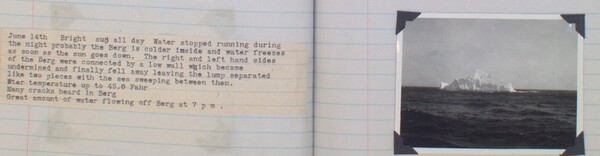 June 14th   Bright sun all day  Water stopped running during
the night probably the Berg is colder inside and water freezes
as soon as the sun goes down.  The right and left hand sides
of the Berg were connected by a low wall which became
undermined and finally fell away leaving the lump separated
like two pieces with the sea sweeping between them.
Wter temperature up to 45.0 Fahr
Many cracks heard in Berg
Great amount of water flowing off Berg at 7 p m .